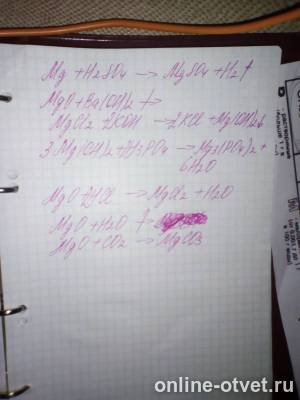 Mg + H2SO4 → MgSO4 + H2↑
MgO + Ba(OH)2 ↛
MgCl2 + 2KOH → 2KCl + Mg(OH)2↓
3Mg(OH)2 + 2H3PO4 → Mg3(PO4)2 +
6H2O
MgO + 2HCl → MgCl2 + H2O
MgO + H2O ↛
MgO + CO2 → MgCO3
online-otvet.ru